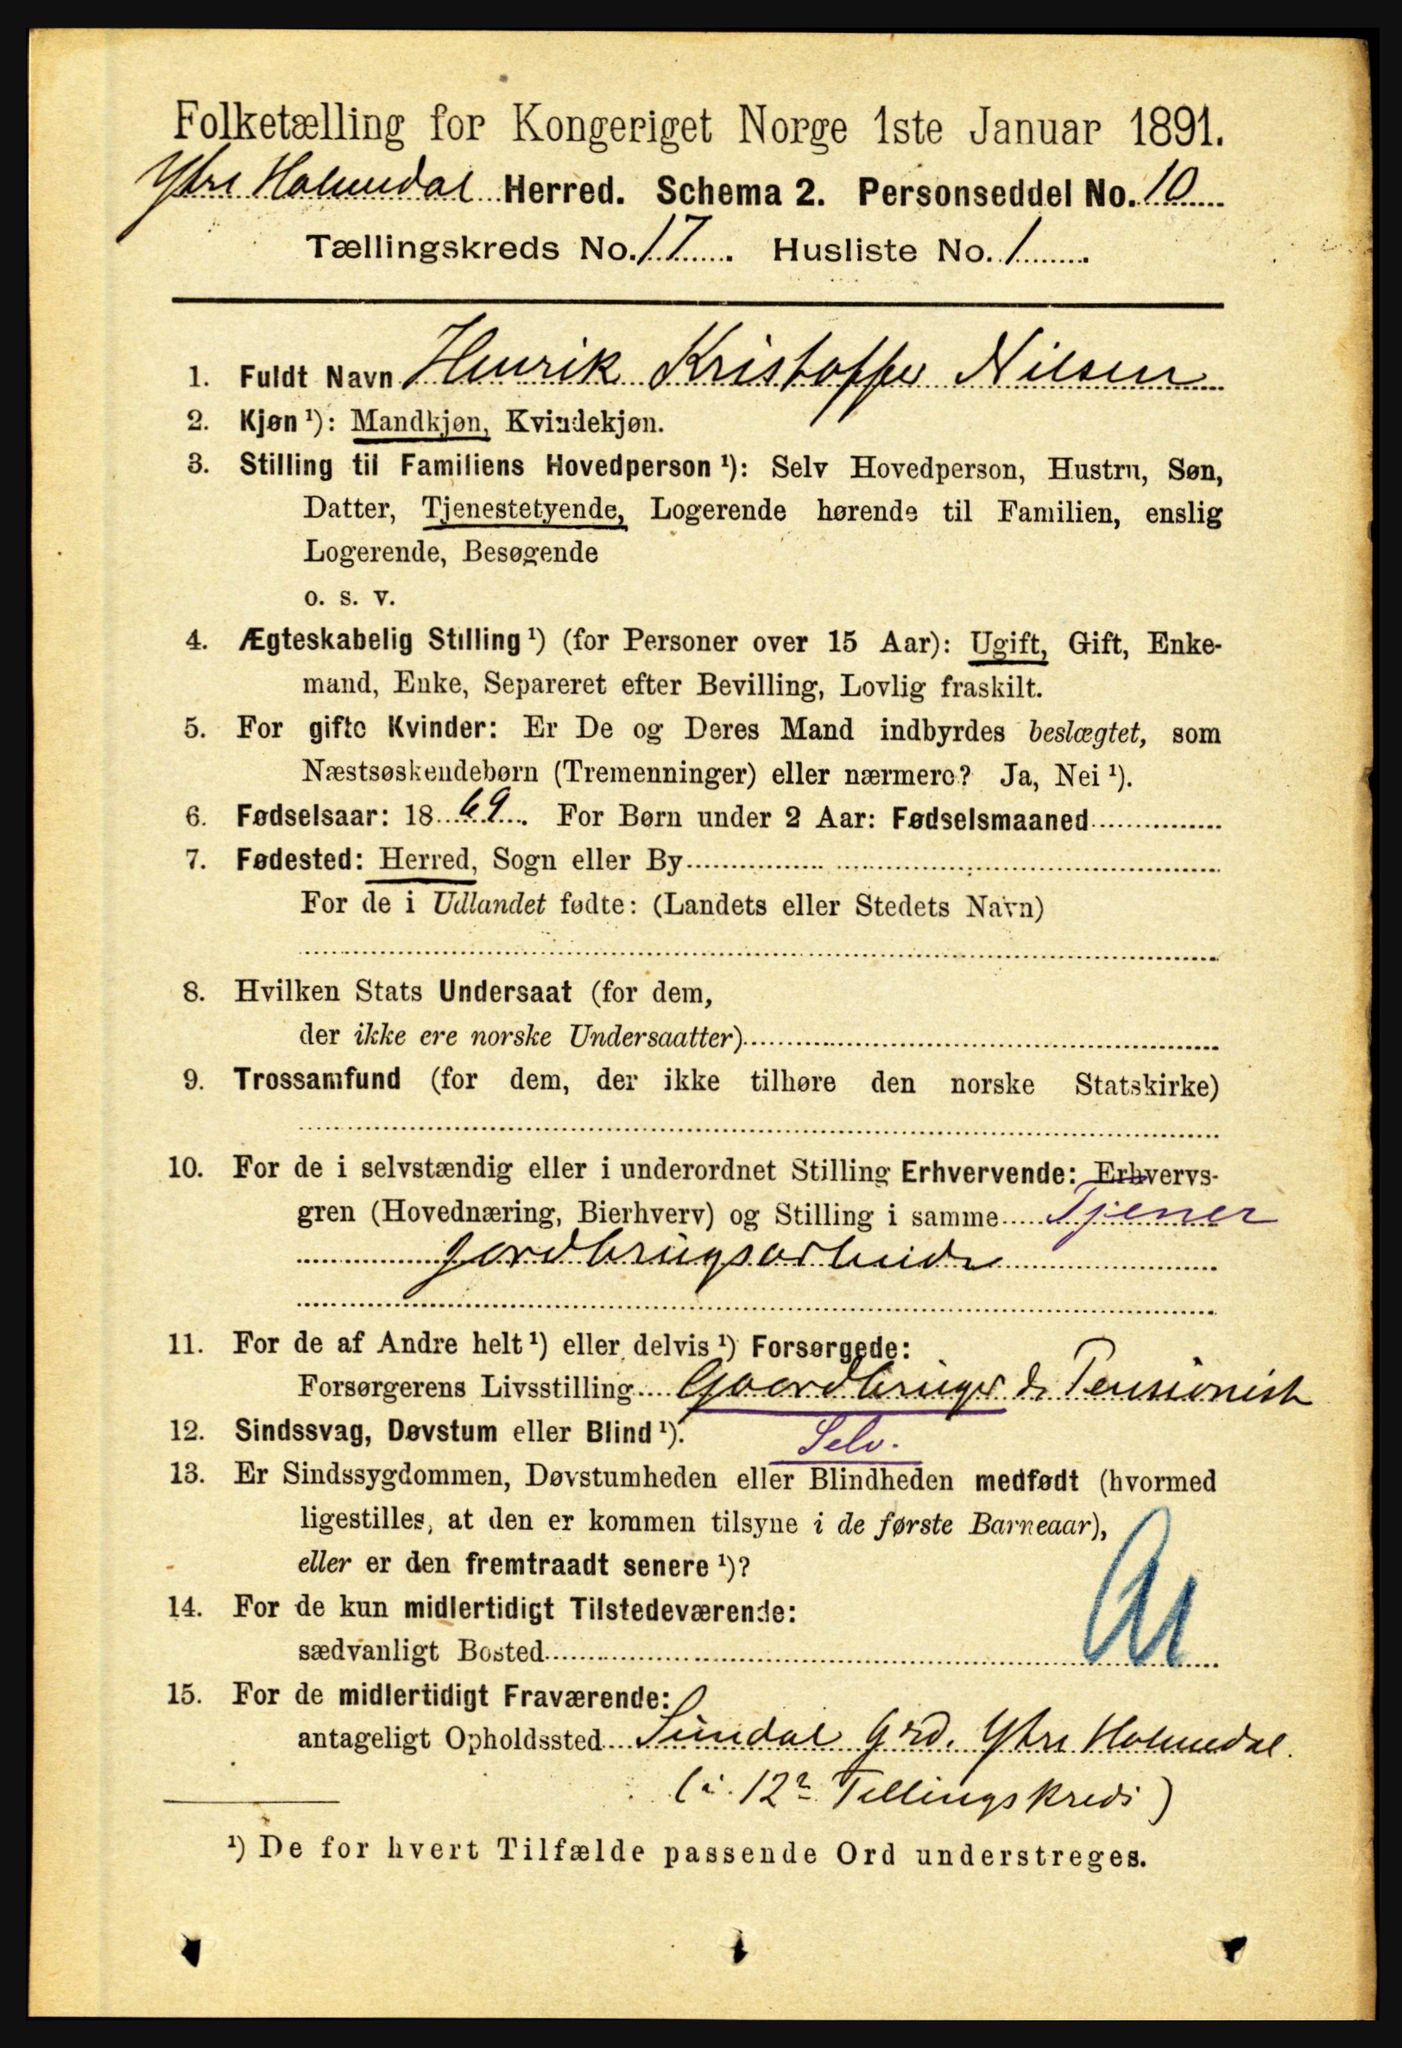 Folketælling for Kongeriget Norge 1ste Januar 1891.
Ytre Holmedal Herred. Schema 2. Personseddel No. 10
Tællingskreds No. 17. Husliste No. 1
1. Fuldt Navn Henrik Kristoffer Nilsen
2. Kjøn ¹): Mandkjøn, Kvindekjøn.
3. Stilling til Familiens Hovedperson ¹): Selv Hovedperson, Hustru, Søn,
Datter, Tjenestetyende, Logerende hørende til Familien, enslig
Logerende, Besøgende
o. s. v.
4. Ægteskabelig Stilling ¹) (for Personer over 15 Aar): Ugift, Gift, Enke-
mand, Enke, Separeret efter Bevilling, Lovlig fraskilt.
5. For gifte Kvinder: Er De og Deres Mand indbyrdes beslægtet, som
Næstsøskendebørn (Tremenninger) eller nærmere? Ja, Nei ¹).
6. Fødselsaar: 18 69. For Børn under 2 Aar: Fødselsmaaned
7. Fødested: Herred, Sogn eller By
For de i Udlandet fødte: (Landets eller Stedets Navn)
8. Hvilken Stats Undersaat (for dem,
der ikke ere norske Undersaatter)
9. Trossamfund (for dem, der ikke tilhøre den norske Statskirke)
10. For de i selvstændig eller i underordnet Stilling Erhvervende: Erhvervs-
gren (Hovednæring, Bierhverv) og Stilling i samme Tjener
Jordbrugsarbeide
11. For de af Andre helt ¹) eller delvis ¹) Forsørgede:
Forsørgerens Livsstilling Gaardbruger & Pensionist
12. Sindssvag, Døvstum eller Blind ¹). Selv.
13. Er Sindssygdommen, Døvstumheden eller Blindheden medfødt (hvormed
ligestilles, at den er kommen tilsyne i de første Barneaar),
eller er den fremtraadt senere ¹)?
14. For de kun midlertidigt Tilstedeværende:
sædvanligt Bosted
15. For de midlertidigt Fraværende:
antageligt Opholdssted Sundal Grd. Ytre Holmedal.
(i 12te Tellingskreds)
¹) De for hvert Tilfælde passende Ord understreges.